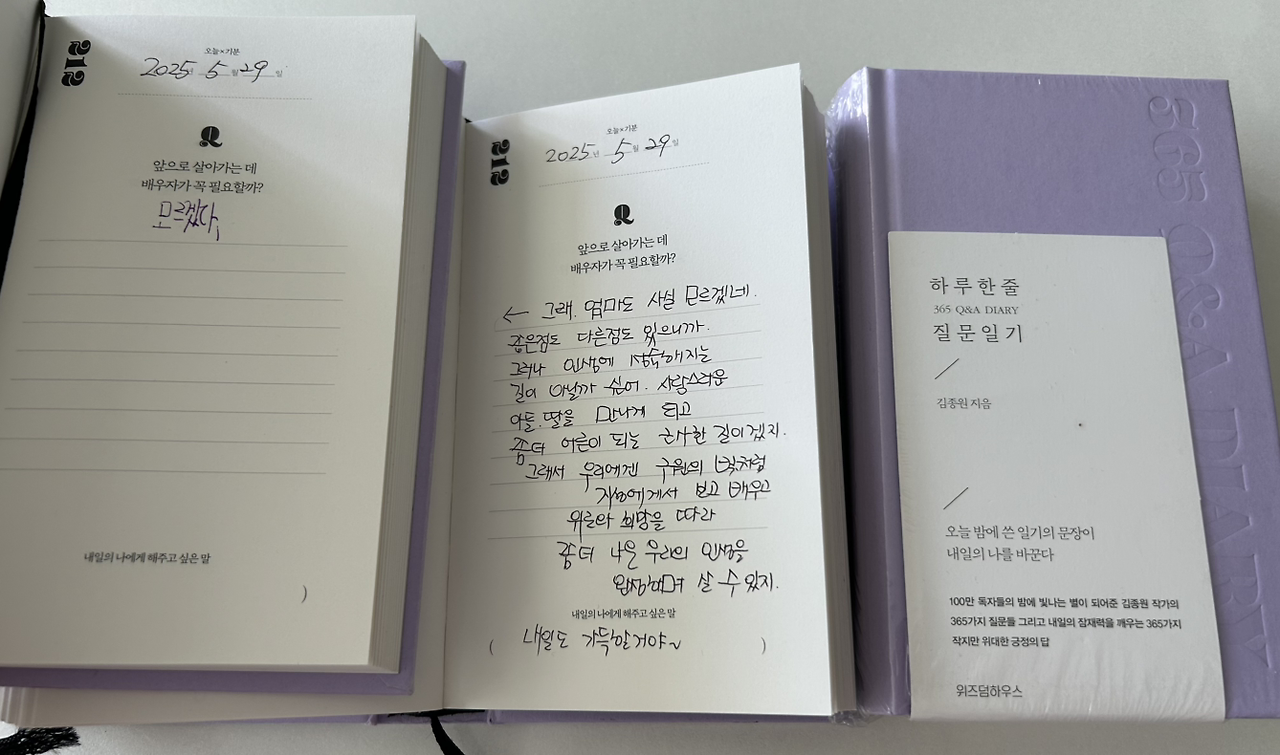 212
오늘×기분
2025년 5월 29일
Q
앞으로 살아가는 데
배우자가 꼭 필요할까?
모르겠다,
내일의 나에게 해주고 싶은 말
)
212
오늘×기분
2025년 5월 29일
Q
앞으로 살아가는 데
배우자가 꼭 필요할까?
← 그래. 엄마도 사실 모르겠네.
좋은점도 다른점도 있으니까.
그러나 인생에 성숙해지는
길이 아닐까 싶어. 사랑스러운
아들.딸을 만나게 되고
좀더 어른이 되는 근사한 길이겠지.
그래서 우리에겐 구원의 빛처럼
지성에게서 보고 배우고
위로와 희망을 따라
좀 더 나은 우리의 인생을
완성해며 살 수 있지.
내일의 나에게 해주고 싶은 말
( 내일도 가득할거야~ )
365 Q&A DIARY
하루 한 줄
365 Q&A DIARY
질문 일기
김종원 지음
오늘 밤에 쓴 일기의 문장이
내일의 나를 바꾼다
100만 독자들의 밤에 빛나는 별이 되어준 김종원 작가의
365가지 질문들 그리고 내일의 잠재력을 깨우는 365가지
작지만 위대한 긍정의 답
위즈덤하우스